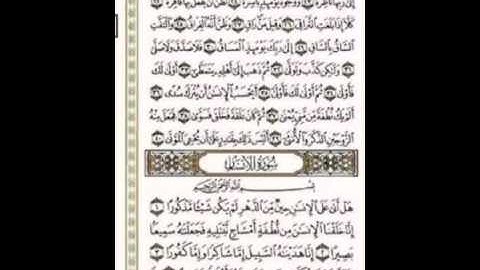 إِلَىٰ رَبِّهَا نَاظِرَةٌ ٢٣ وَوُجُوهٌ يَوْمَئِذٍ بَاسِرَةٌ ٢٤ تَظُنُّ أَن يُفْعَلَ بِهَا فَاقِرَةٌ ٢٥
كَلَّا إِذَا بَلَغَتِ ٱلتَّرَاقِيَ ٢٦ وَقِيلَ مَنْ رَاقٍ ٢٧ وَظَنَّ أَنَّهُ ٱلْفِرَاقُ ٢٨ وَٱلْتَفَّتِ
ٱلسَّاقُ بِٱلسَّاقِ ٢٩ إِلَىٰ رَبِّكَ يَوْمَئِذٍ ٱلْمَسَاقُ ٣٠ فَلَا صَدَّقَ وَلَا صَلَّىٰ
٣١ وَلَٰكِن كَذَّبَ وَتَوَلَّىٰ ٣٢ ثُمَّ ذَهَبَ إِلَىٰ أَهْلِهِۦ يَتَمَطَّىٰ ٣٣ أَوْلَىٰ لَكَ
فَأَوْلَىٰ ٣٤ ثُمَّ أَوْلَىٰ لَكَ فَأَوْلَىٰ ٣٥ أَيَحْسَبُ ٱلْإِنسَٰنُ أَن يُتْرَكَ سُدًى ٣٦
أَلَمْ يَكُ نُطْفَةً مِّن مَّنِىٍّ يُمْنَىٰ ٣٧ ثُمَّ كَانَ عَلَقَةً فَخَلَقَ فَسَوَّىٰ ٣٨ فَجَعَلَ مِنْهُ
ٱلزَّوْجَيْنِ ٱلذَّكَرَ وَٱلْأُنثَىٰٓ ٣٩ أَلَيْسَ ذَٰلِكَ بِقَٰدِرٍ عَلَىٰٓ أَن يُحْۦِىَ ٱلْمَوْتَىٰ ٤٠
سُورَةُ الإِنسَانِ
بِسْمِ ٱللَّهِ ٱلرَّحْمَٰنِ ٱلرَّحِيمِ
هَلْ أَتَىٰ عَلَى ٱلْإِنسَٰنِ حِينٌ مِّنَ ٱلدَّهْرِ لَمْ يَكُن شَيْـًٔا مَّذْكُورًا ١
إِنَّا خَلَقْنَا ٱلْإِنسَٰنَ مِن نُّطْفَةٍ أَمْشَاجٍ نَّبْتَلِيهِ فَجَعَلْنَٰهُ سَمِيعًۢا
بَصِيرًا ٢ إِنَّا هَدَيْنَٰهُ ٱلسَّبِيلَ إِمَّا شَاكِرًا وَإِمَّا كَفُورًا ٣